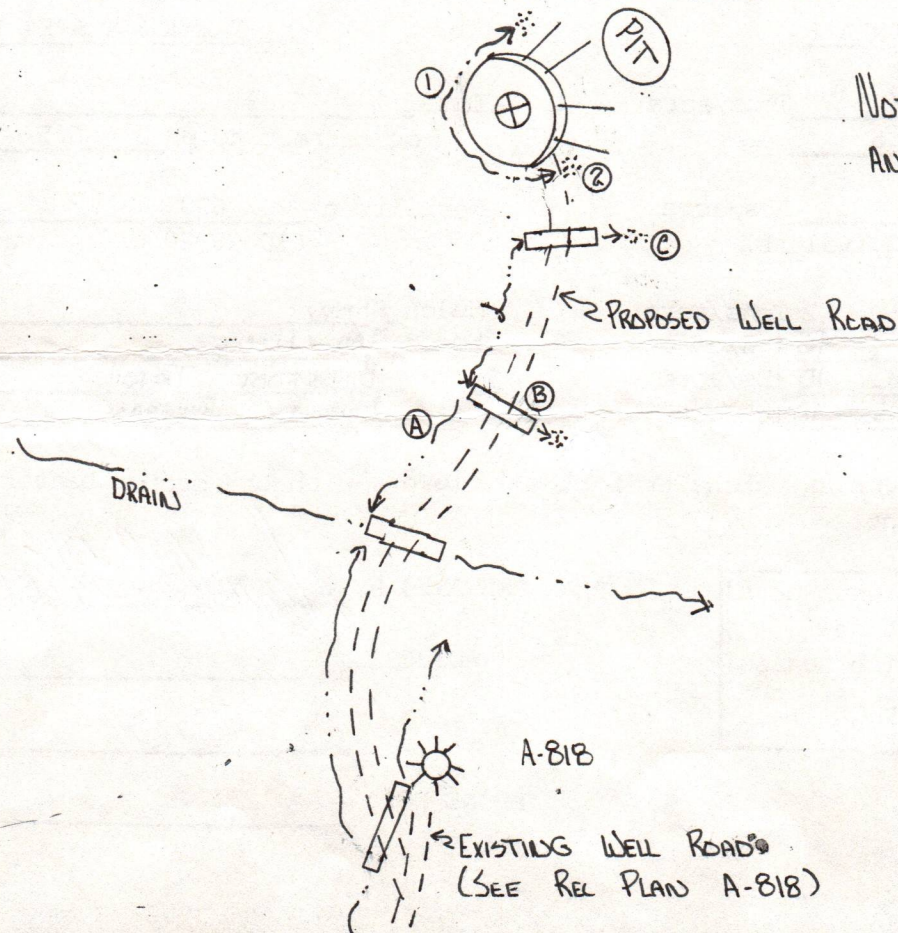 PIT
1
NOT
AN
2
C
PROPOSED WELL ROAD
B
A
DRAIN
A-818
EXISTING WELL ROAD
(SEE REC PLAN A-818)